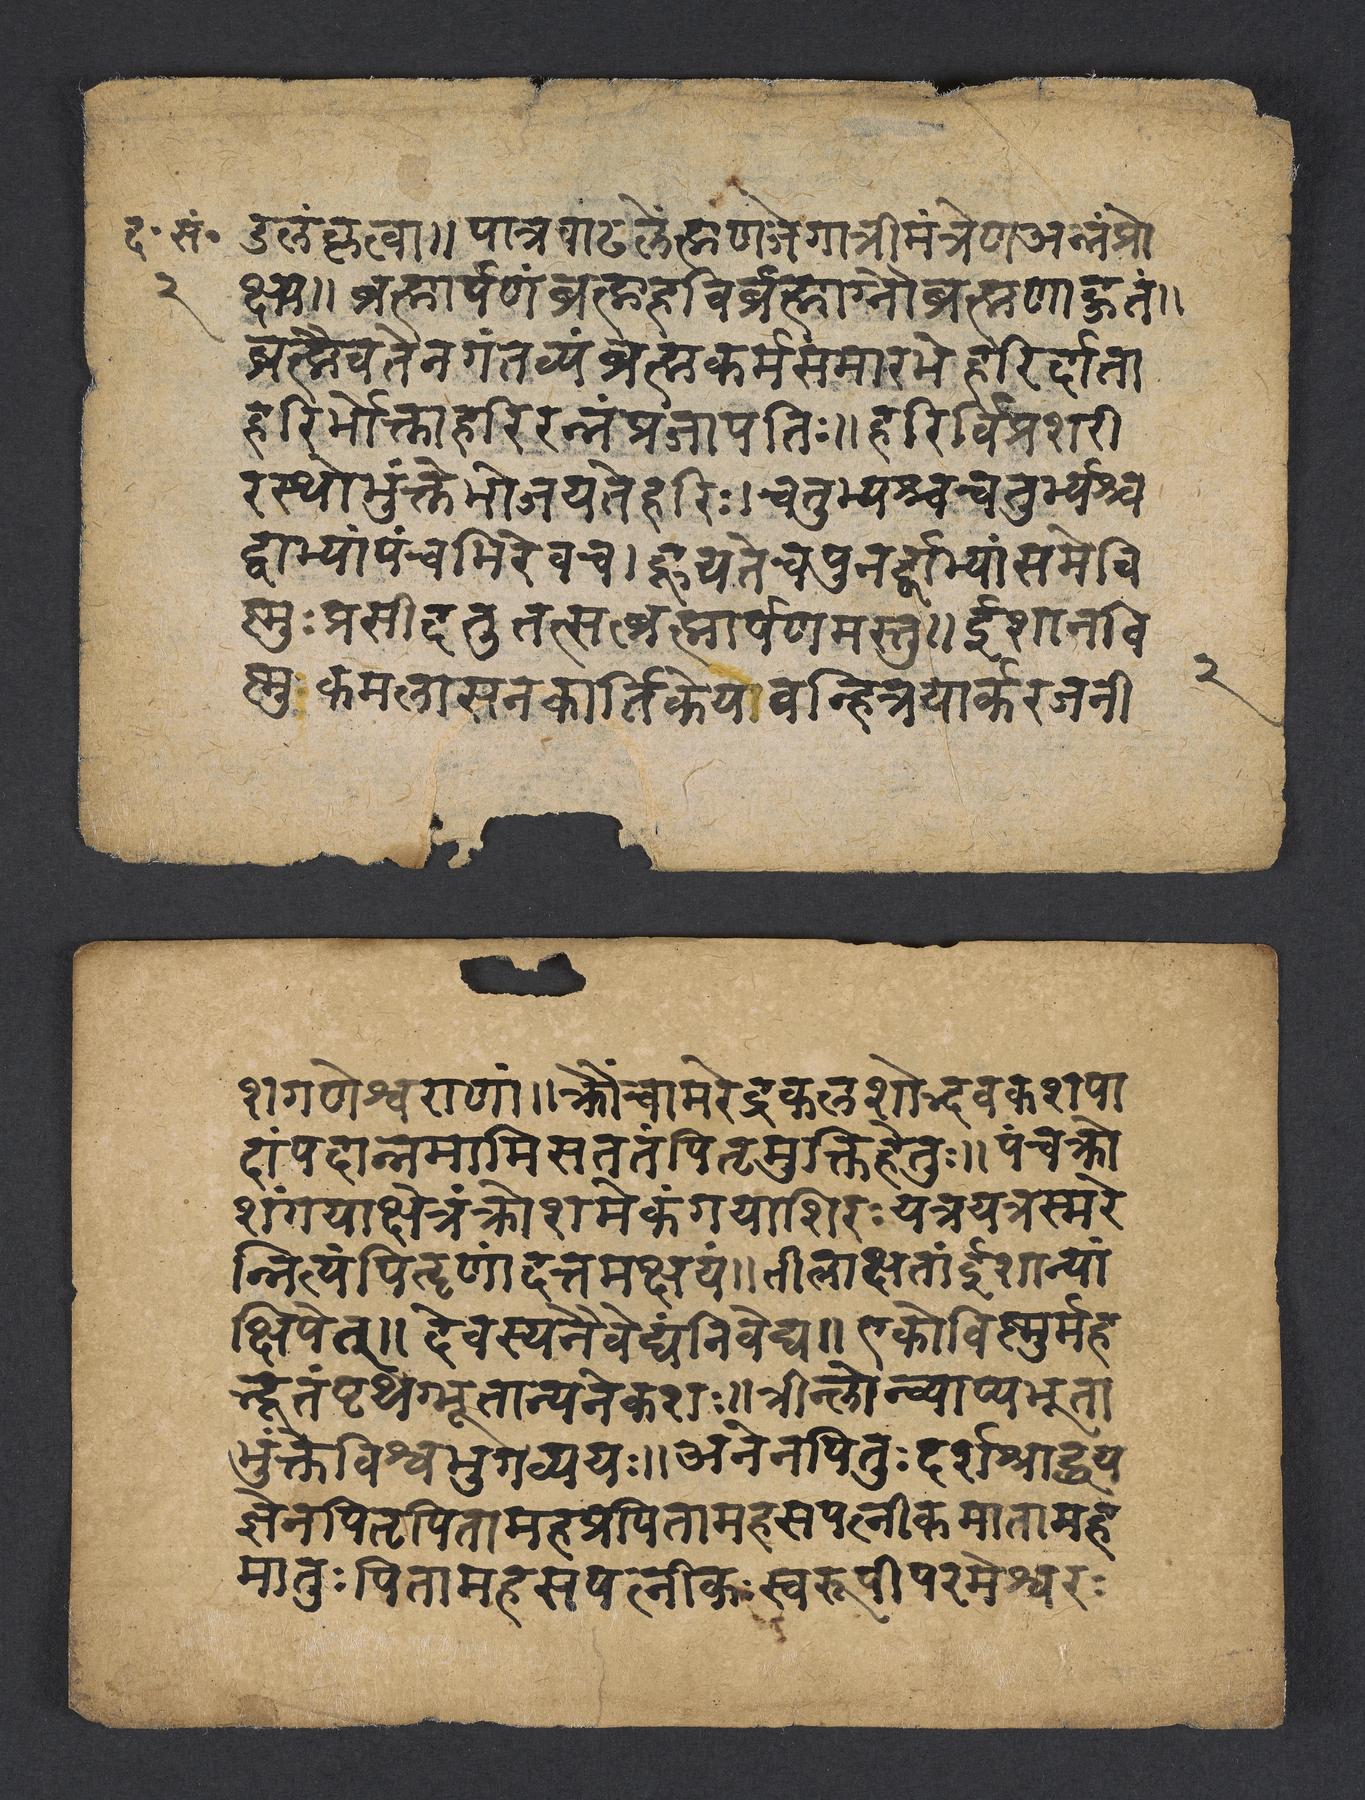 द॰ सं॰
२
डलंकृत्वा॥ पात्र वाढलें ह्मणजे गात्रीमंत्रेण अन्नंप्रो
क्ष्य॥ ब्रह्मार्पणंब्रह्महविर्ब्रह्माग्नौब्रह्मणाहुतं॥
ब्रह्मैवतेनगंतव्यंब्रह्मकर्मसमारभे हरिर्दाता
हरिर्भोक्ताहरिरन्नंप्रजापतिः॥ हरिर्विप्रशरी
रस्थोभुंक्तेभोजयतेहरिः। चतुभ्यश्चचतुर्भ्यश्च
द्वाभ्यांपंचभिरेवच। हूयतेचपुनर्द्वाभ्यांसमेवि
ष्णुःप्रसीदतु तत्सब्रह्मार्पणमस्तु॥ ईशानवि
ष्णु कमलासनकार्तिकेयावन्हित्रयार्करजनी
२
शगणेश्वराणां॥ क्रौंचामरेंद्रकलशोद्भवकशपा
दांपदान्नमामिसततंपितृमुक्तिहेतुः॥ पंचक्रो
शंगयाक्षेत्रंक्रोशमेकंगयाशिरः यत्रयत्रस्मरे
न्नित्यंपितॄणांदत्तमक्षयं॥ तीलाक्षतांईशान्यां
क्षिपेत्॥ देवस्यनैवेद्यंनिवेद्य॥ एकोविष्णुर्मह
द्भूतंपृथग्भूतान्यनेकशः॥ त्रीन्लोन्व्याप्यभूता
भुंक्तेविश्वभुगव्ययः॥ अनेनपितुःदर्शश्राद्धय
ज्ञेनपितृपितामहप्रपितामहसपत्नीकमातामह
मातुःपितामहसपत्नीकःस्वरूपीपरमेश्वरः